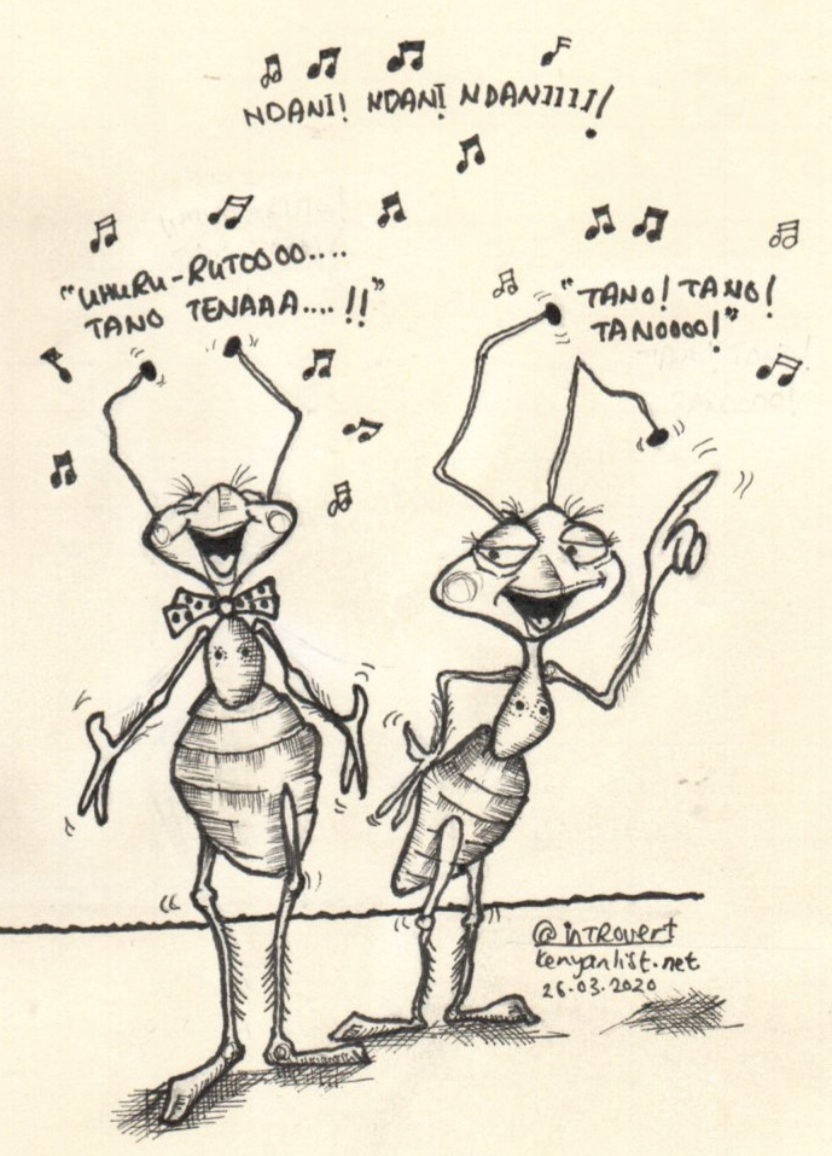 NDANI! NDANI NDANIIII!
"UHURU-RUTOOOO....
TANO TENAAA....!!"
"TANO! TANO!
TANOOOO!"
@inTROvert
kenyanlist.net
26.03.2020